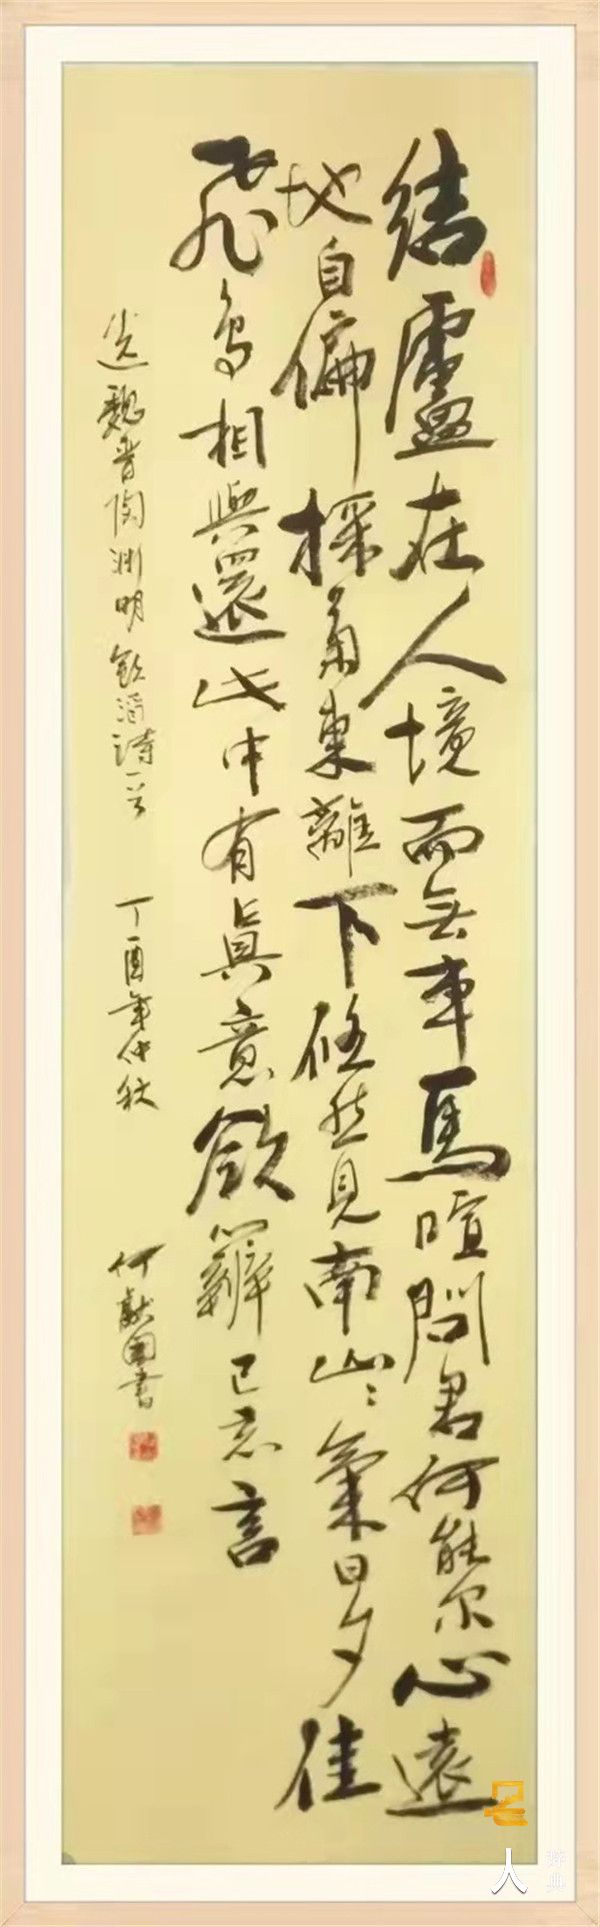 結廬在人境而無車馬喧問君何能尔心遠
地自偏採菊東離下悠然見南山々氣日夕佳
飛鳥相與還此中有眞意欲辯已忘言
选魏晋陶渊明飲酒詩一首 丁酉年仲秋 何献國書
名人辞典